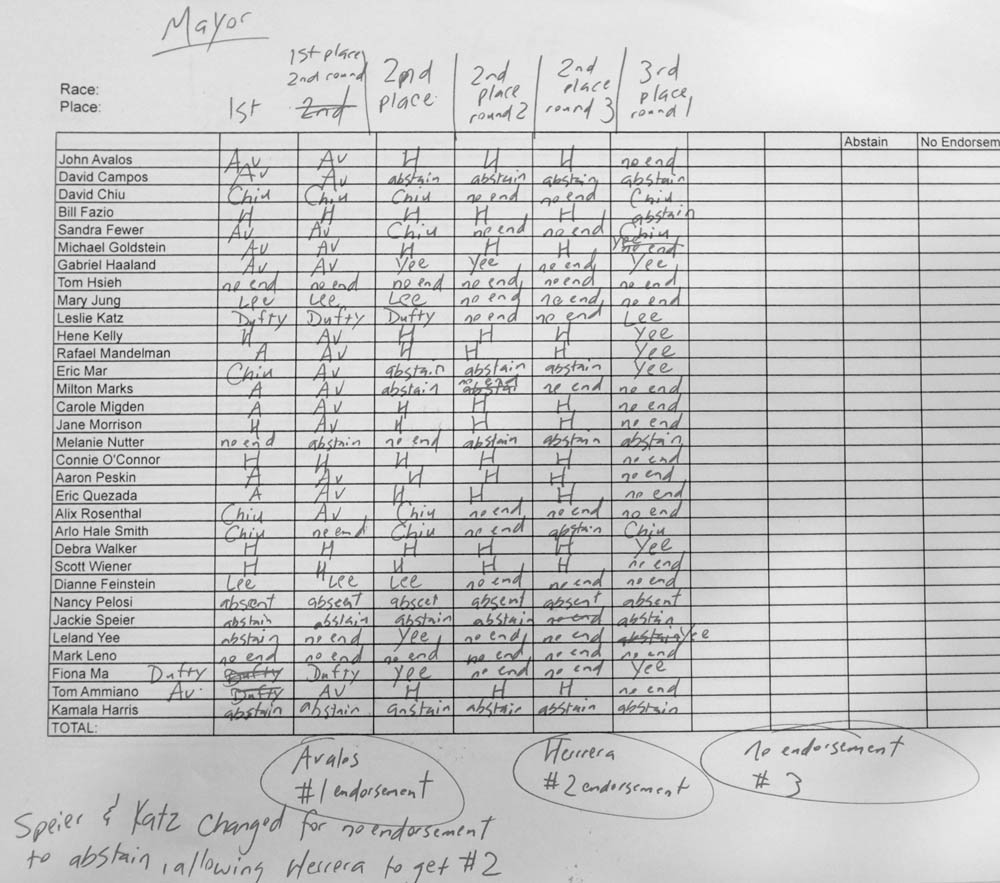 Mayor
Race:
Place: 1st 1st place 2nd round 2nd 2nd place 2nd place round 2 2nd place round 3 3rd place round 1
Abstain No Endorsem
John Avalos Av Av H H H no end
David Campos Av Av abstain abstain abstain abstain
David Chiu Chiu Chiu Chiu no end no end Chiu
Bill Fazio H H H H H abstain
Sandra Fewer Av Av Chiu no end no end Chiu
Michael Goldstein Av Av H H H Yee no end
Gabriel Haaland Av Av Yee Yee no end Yee
Tom Hsieh no end no end no end no end no end no end
Mary Jung Lee Lee Lee no end no end no end
Leslie Katz Dufty Dufty Dufty no end no end Lee
Hene Kelly H Av H H H Yee
Rafael Mandelman A Av H H H Yee
Eric Mar Chiu Av abstain abstain abstain Yee
Milton Marks A Av abstain no end abstai no end no end
Carole Migden A Av H H H no end
Jane Morrison H Av H H H no end
Melanie Nutter no end abstain no end abstain abstain abstain
Connie O'Connor H H H H H no end
Aaron Peskin A Av H H H no end
Eric Quezada A Av H H H no end
Alix Rosenthal Chiu Av Chiu no end no end no end
Arlo Hale Smith Chiu no end Chiu no end abstain Chiu
Debra Walker H H H H H Yee
Scott Wiener H H H H H no end
Dianne Feinstein Lee Lee Lee no end no end no end
Nancy Pelosi absent absent abscet absent absent absent
Jackie Speier abstain abstain abstain abstain no end abstain
Leland Yee abstain no end Yee no end no end abstain Yee
Mark Leno no end no end no end no end no end no end
Fiona Ma Dufty Dufty Dufty Yee no end no end Yee
Tom Ammiano Av. Dufty Av H H H no end
Kamala Harris abstain abstain anstain abstain abstain abstain
TOTAL:
Avalos #1 endorsement
Herrera #2 endorsement
no endorsement #3
Speier & Katz changed for no endorsement
to abstain, allowing Herrera to get #2